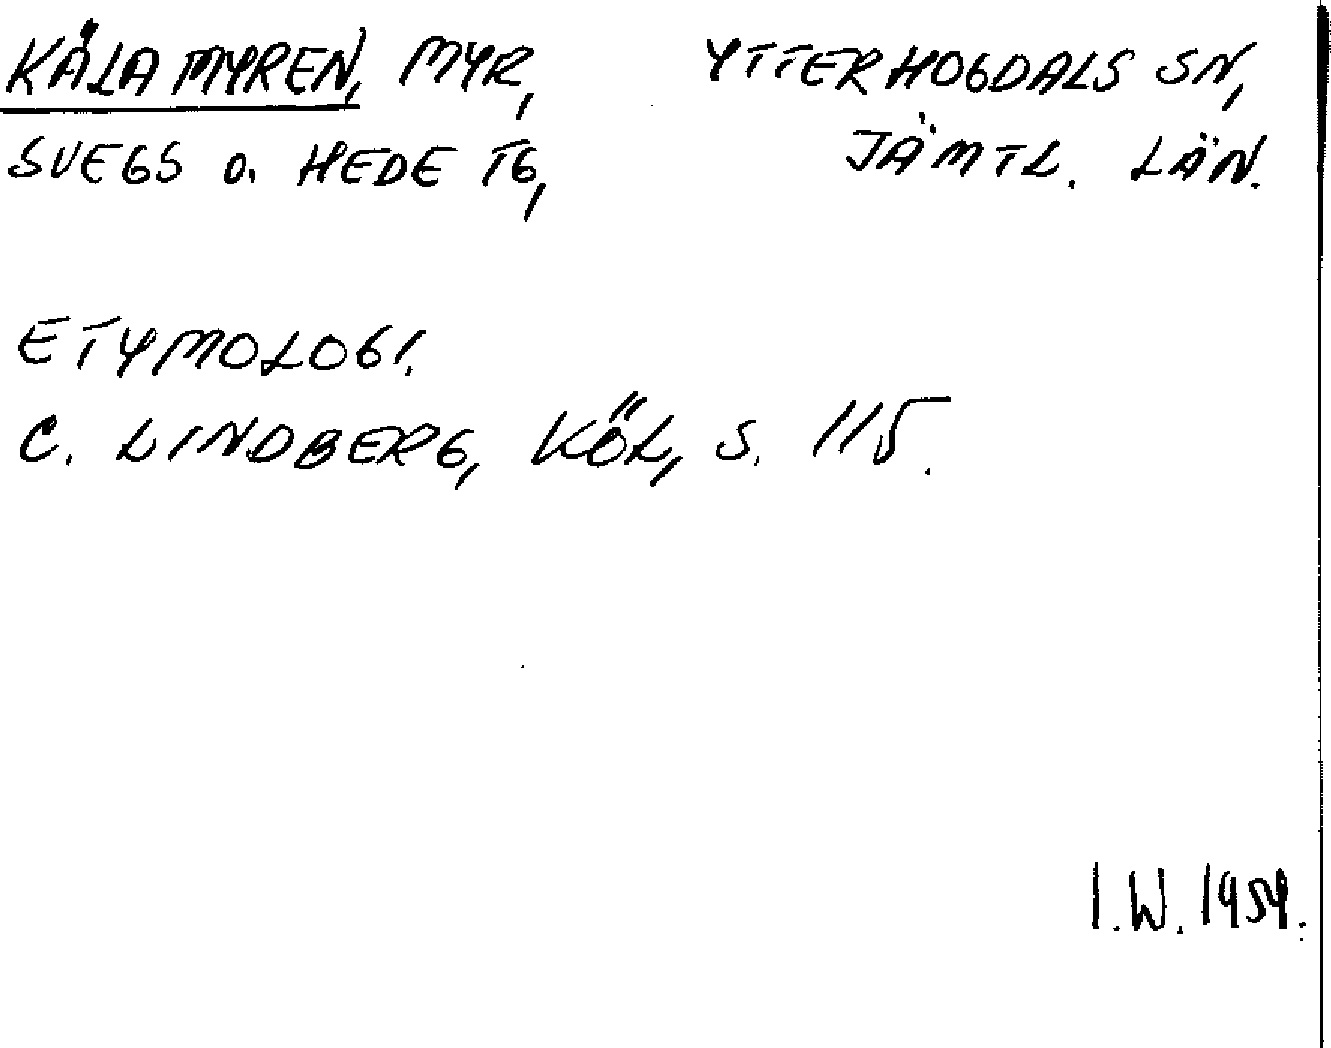 KÄLAMYREN, MYR, YTTERHOGDALS SN,
SVEGS O. HEDE TG, JÄMTL. LÄN.
ETYMOLOGI.
C. LINDBERG, KÖL, S. 115.
I.W. 1959.